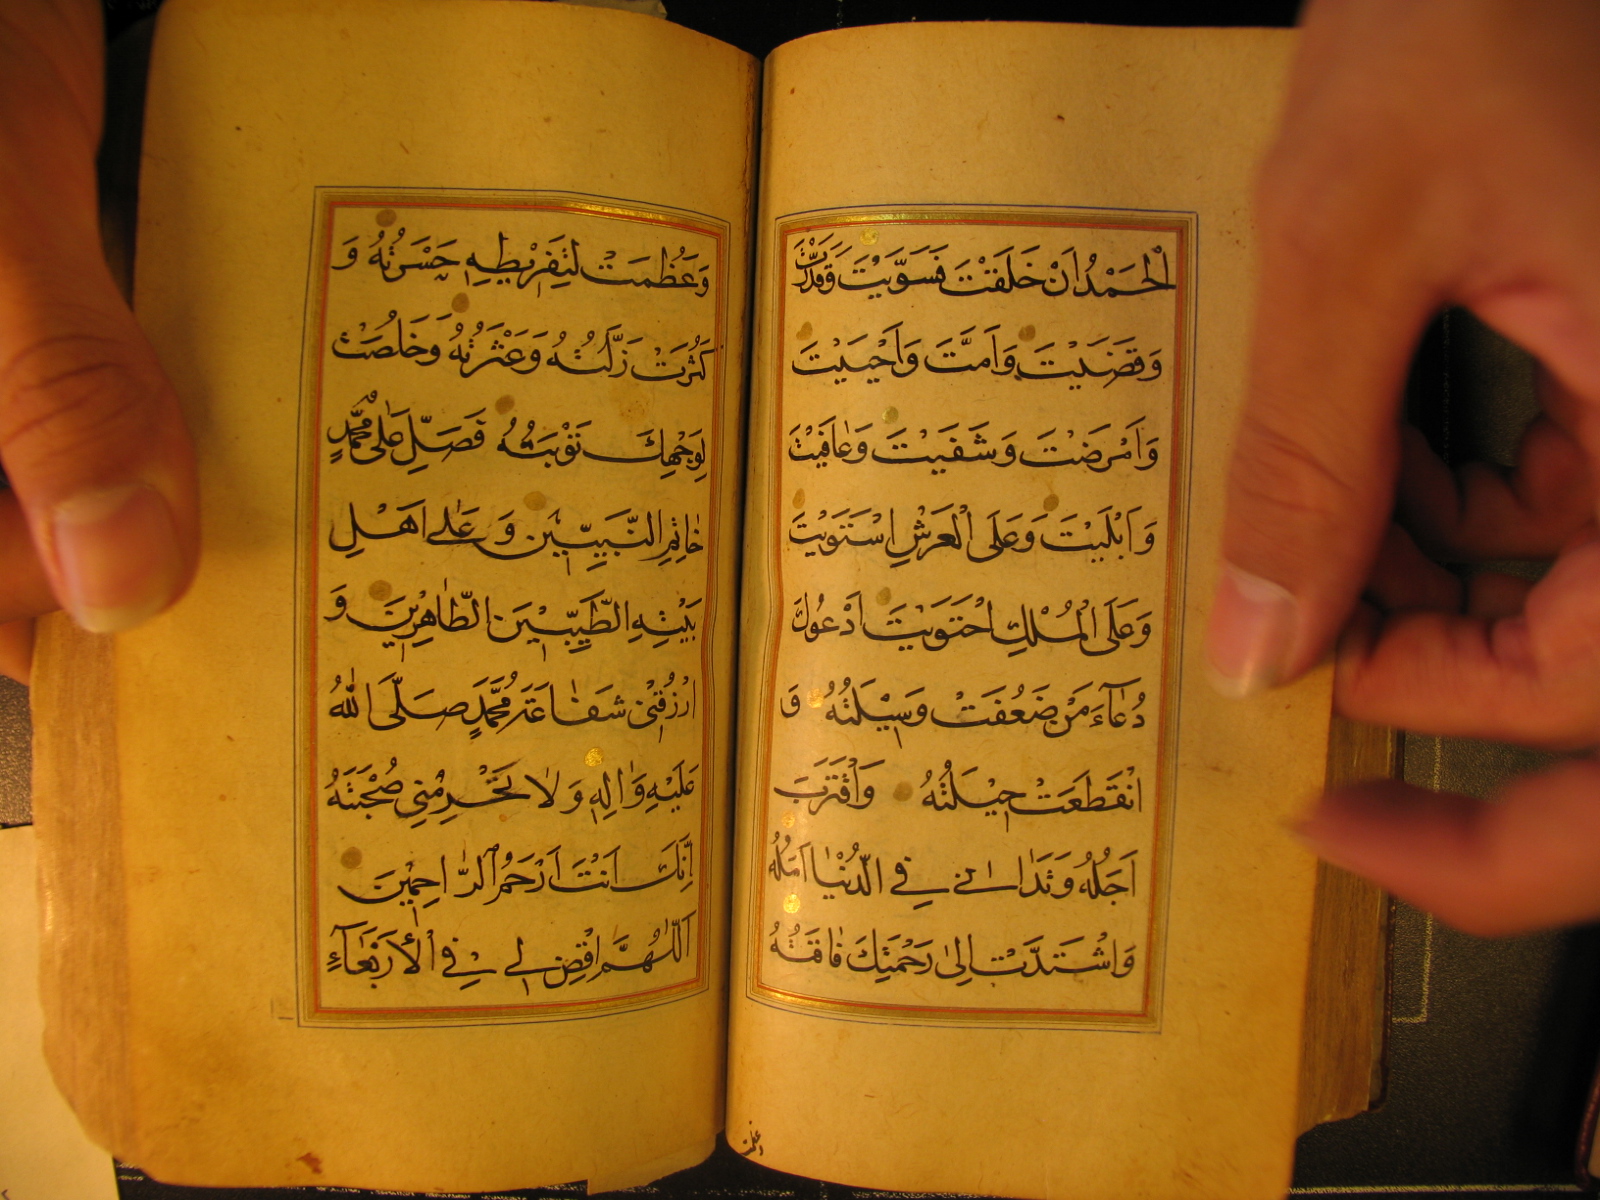 الْحَمْدُ اَنْ خَلَقْتَ فَسَوَّيْتَ وَقَدَّرْتَ
وَقَضَيْتَ وَاَمَتَّ وَاَحْيَيْتَ
وَاَمْرَضْتَ وَشَفَيْتَ وَعٰافَيْتَ
وَاَبْلَيْتَ وَعَلَى الْعَرْشِ اسْتَوَيْتَ
وَعَلَى الْمُلْكِ احْتَوَيْتَ اَدْعُوكَ
دُعٰآءَ مَنْ ضَعُفَتْ وَسِيْلَتُهُ وَ
انْقَطَعَتْ حِيْلَتُهُ وَاقْتَرَبَ
اَجَلُهُ وَتَدٰانٰى فِي الدُّنْيٰا اَمَلُهُ
وَاشْتَدَّتْ اِلىٰ رَحْمَتِكَ فٰاقَتُهُ
وعظمت
وَعَظُمَتْ لِتَفْرِيْطِهِ حَسْرَتُهُ وَ
كَثُرَتْ زَلَّتُهُ وَعَثْرَتُهُ وَخَلُصَتْ
لِوَجْهِكَ تَوْبَتُهُ فَصَلِّ عَلٰى مُحَمَّدٍ
خٰاتِمِ النَّبِيّيْنَ وَعَلٰى اَهْلِ
بَيْتِهِ الطَّيِّبِيْنَ الطّٰاهِرِيْنَ وَ
ارْزُقْنِيْ شَفٰاعَةَ مُحَمَّدٍ صَلَّى اللّٰهُ
عَلَيْهِ وَاٰلِهِ وَلٰا تَحْرِمْنِي صُحْبَتَهُ
اِنَّكَ اَنْتَ اَرْحَمُ الرّٰاحِمِيْنَ
اَللّٰهُمَّ اقْضِ لِي فِي الْاَرْبَعٰآءِ